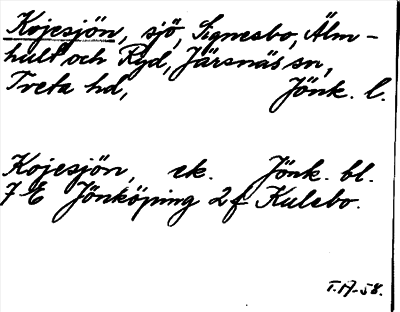 Kojesjön, sjö, Signesbo, Älm-
hult och Ryd, Järsnäs sn,
Tveta hd, Jönk. l.
Kojesjön, ek. Jönk. bl.
7 E Jönköping 2 f Kulebo.
T.A-58.